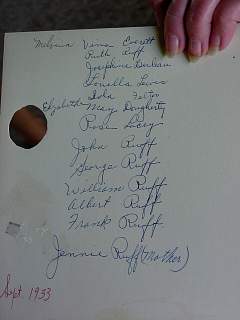 Melvina Vina Everett
Ruth Ruff
Josephine
Louella Lewis
Iola
Elizabeth May Dougherty
Rose Lucy
John Ruff
George Ruff
William Ruff
Albert Ruff
Frank Ruff
Jennie Ruff (Mother)
Sept. 1933